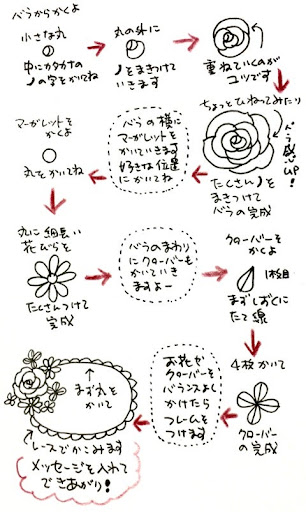 バラからかくよ
小さな丸
中にカタカナの
ノの字をかいてね
丸の外に
ノをまきつけて
いきます
重ねていくのが
コツです
ちょっとひねってみたり
バラ感UP!
たくさんノを
まきつけて
バラの完成
バラの横に
マーガレットを
かいていきます
好きな位置
にかいてね
マーガレットを
かくよ
丸をかいてね
丸に細長い
花びらを
たくさんつけて
完成
バラのまわり
にクローバーも
かいていき
ますよー
クローバーを
かくよ
1枚組
まずしずくに
たて線
4枚かいて
クローバー
の完成
お花と
クローバーを
バランスよく
かけたら
フレームを
つけます
まず丸を
かいて
レースでかこみます
メッセージを入れて
できあがり!